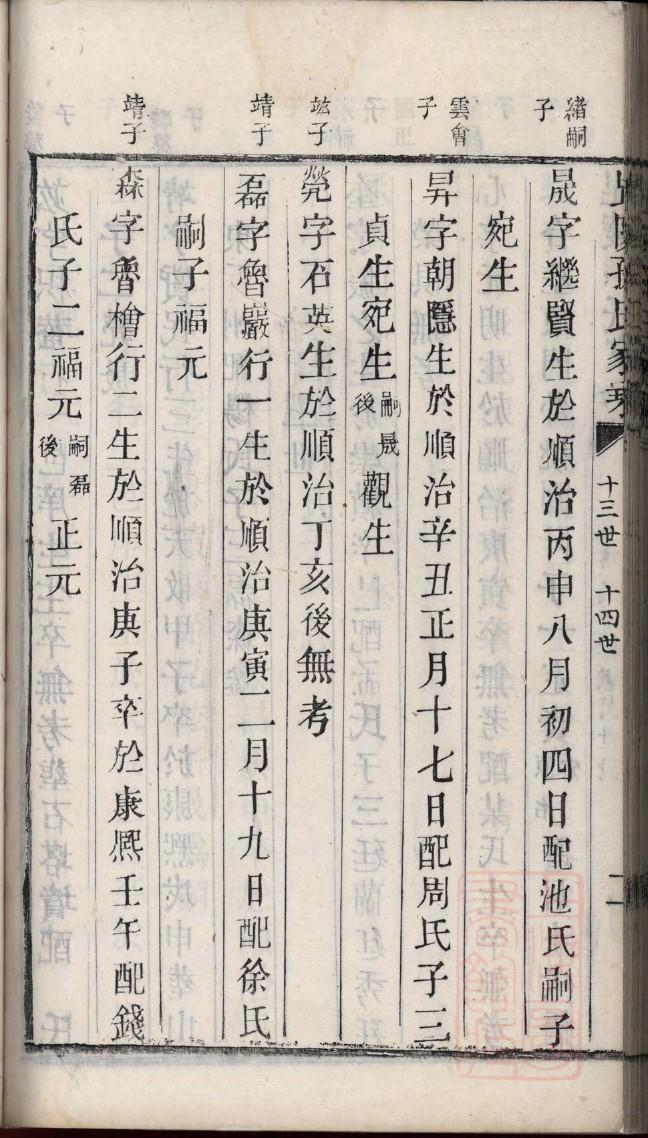 孫氏家乘
十三世 十四世
二
緒嗣子
晟字繼賢生於順治丙申八月初四日配池氏嗣子
宛生
雲會子
昇字朝隱生於順治辛丑正月十七日配周氏子三
貞生宛生嗣晟後觀生
玆子
甇字石英生於順治丁亥後無考
靖子
磊字魯巖行一生於順治庚寅二月十九日配徐氏
嗣子福元
靖子
森字魯檜行二生於順治庚子卒於康熙壬午配錢
氏子二福元嗣磊後正元